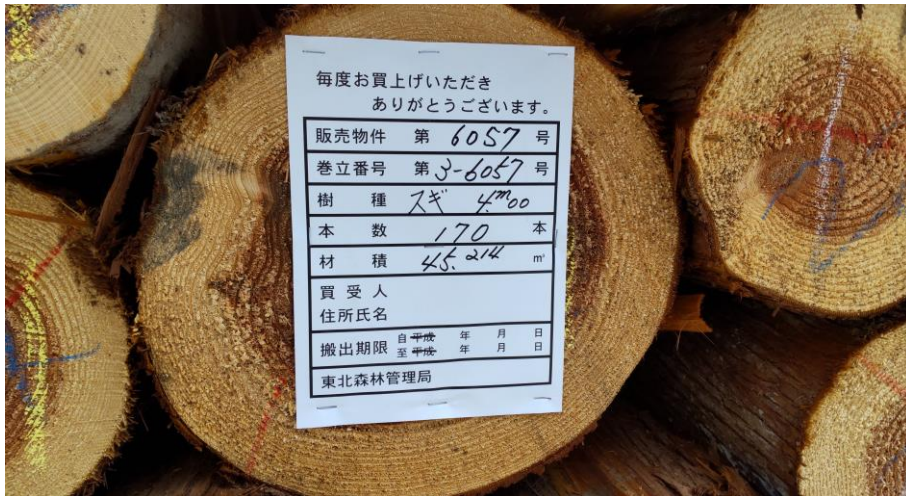 毎度お買上げいただき
ありがとうございます。
販売物件 第 6057 号
巻立番号 第 3-6057 号
樹種 スギ 4.ᵐ00
本数 170 本
材積 45.214 m³
買受人
住所氏名
搬出期限 自 平成 年 月 日
至 平成 年 月 日
東北森林管理局